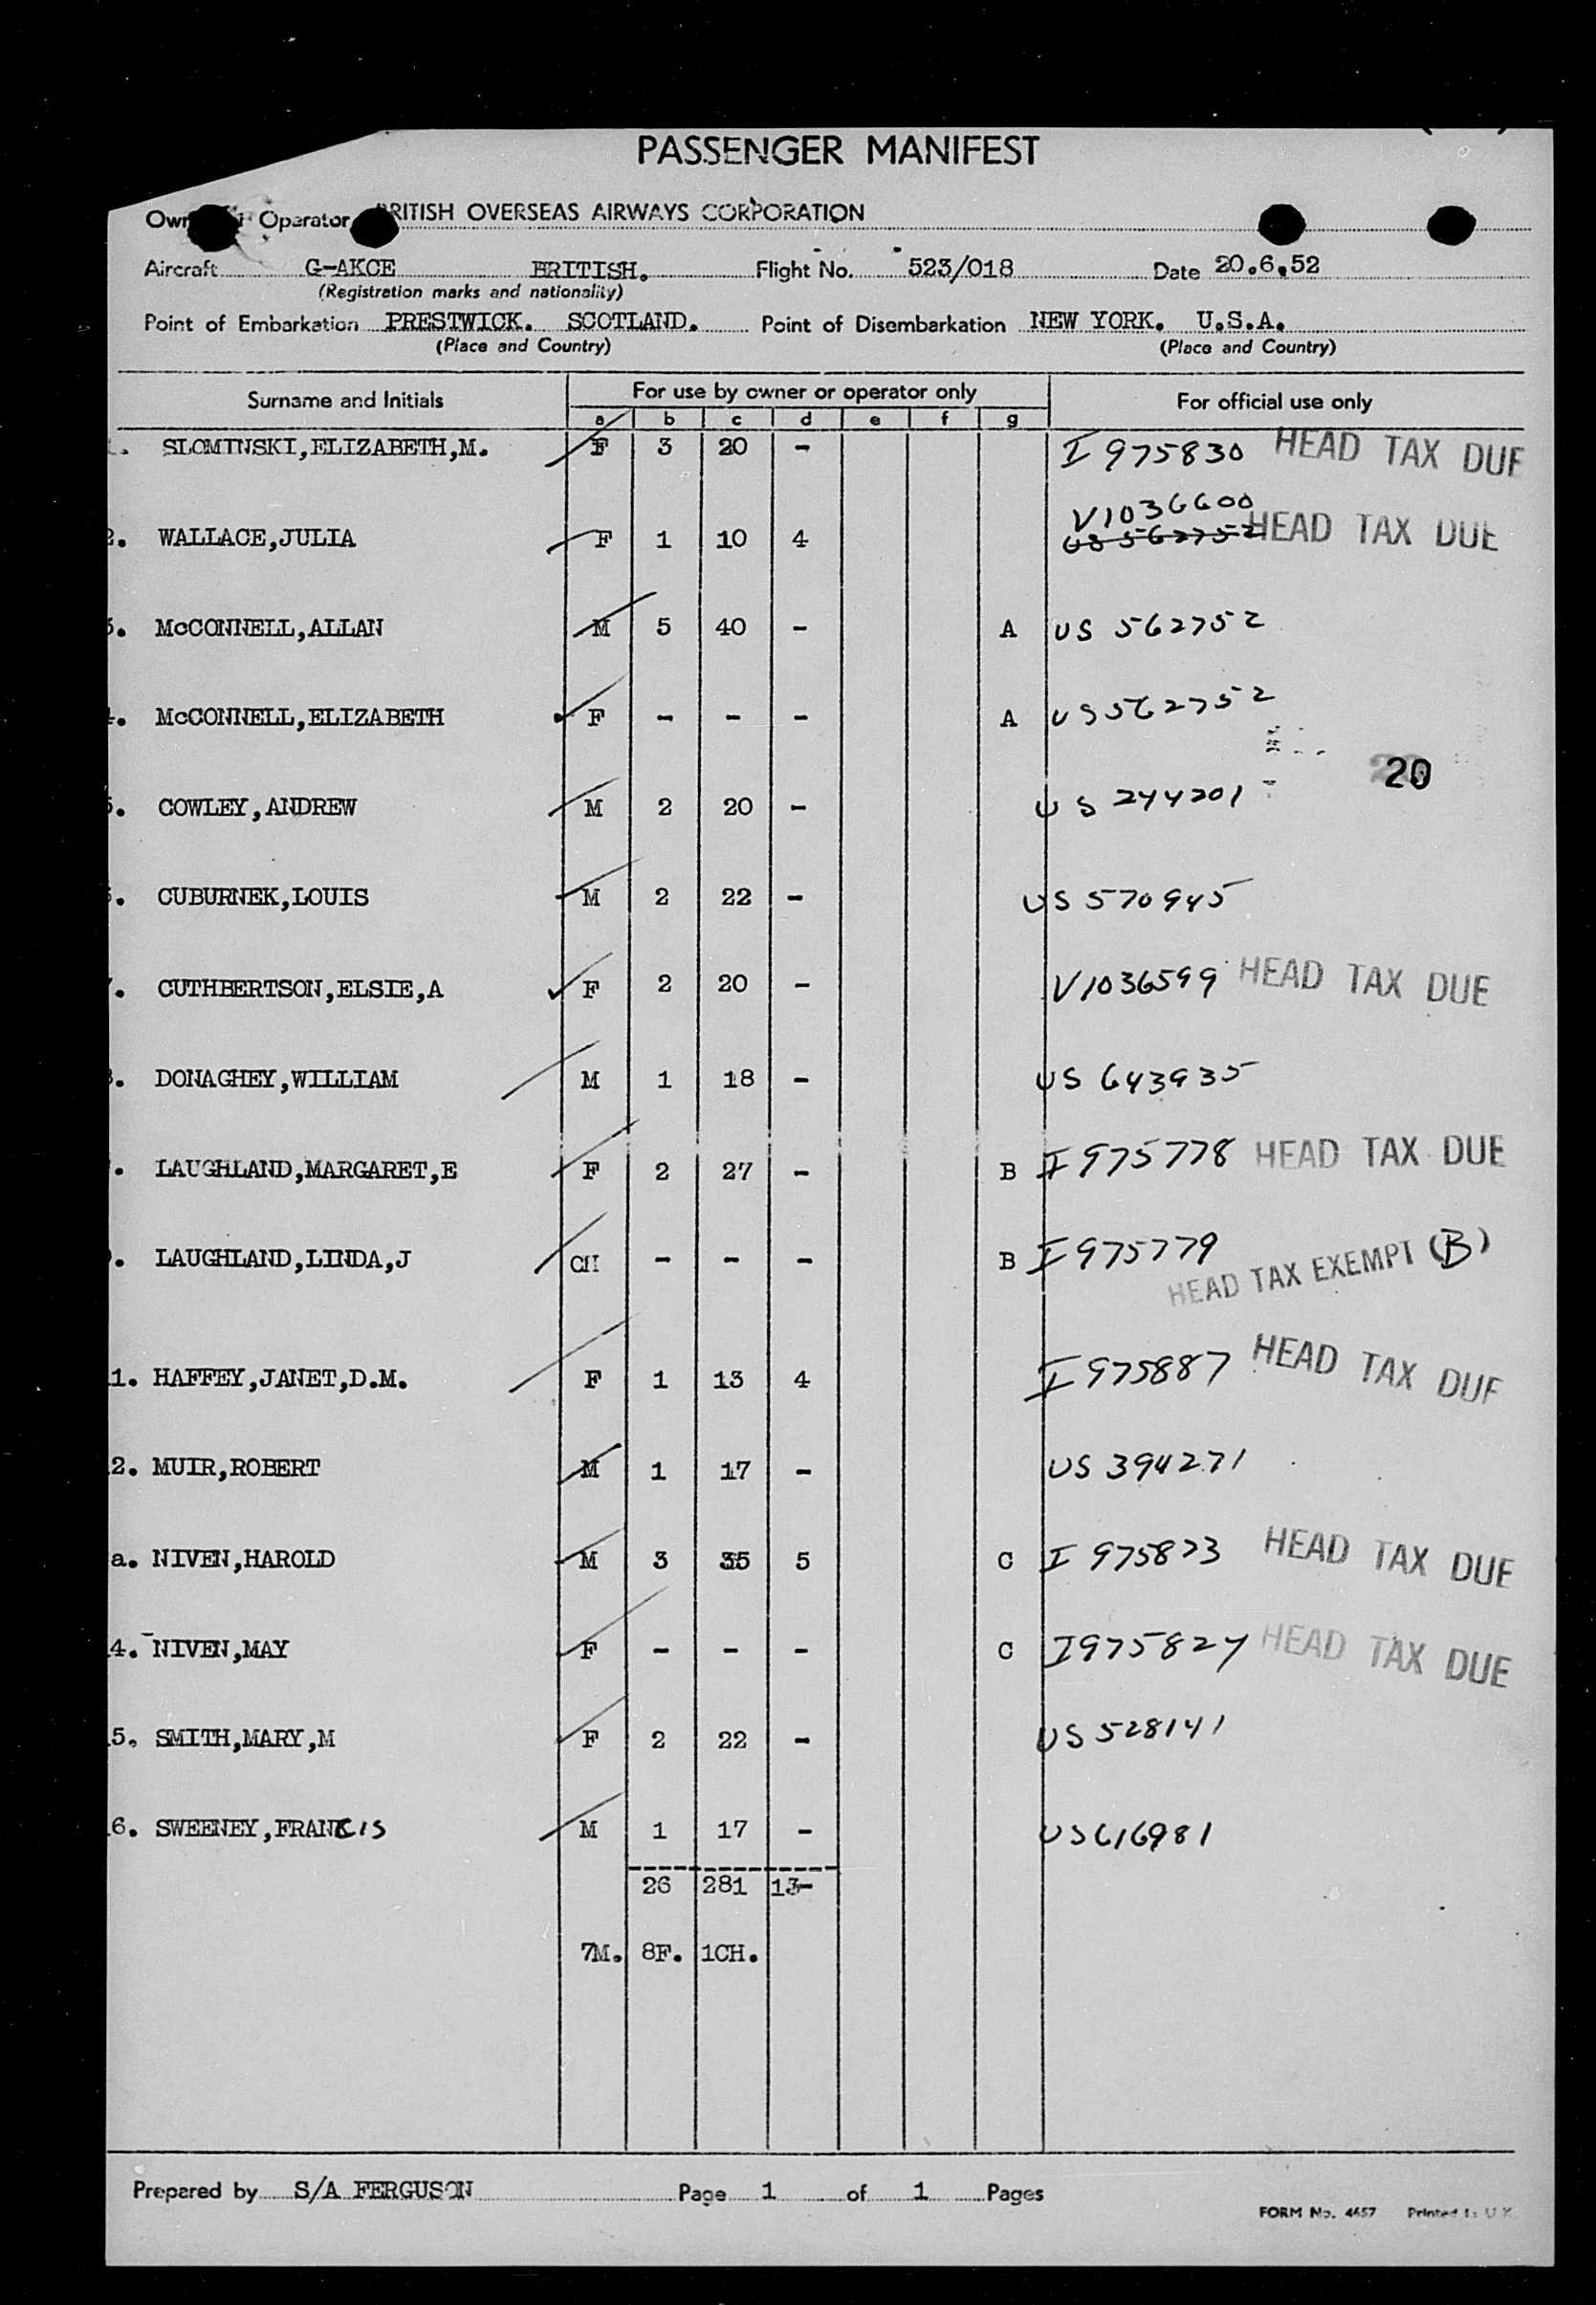 PASSENGER MANIFEST
Operator BRITISH OVERSEAS AIRWAYS CORPORATION
Aircraft G-AKCE BRITISH. Flight No. 523/018 Date 20.6.52
(Registration marks and nationality)
Point of Embarkation PRESTWICK. SCOTLAND. Point of Disembarkation NEW YORK. U.S.A.
(Place and Country) (Place and Country)
Surname and Initials For use by owner or operator only For official use only
a b c d e f g
SLOMINSKI,ELIZABETH,M. F 3 20 - I 975830 HEAD TAX DUE
V1036600
2. WALLACE,JULIA F 1 10 4 US 562752 HEAD TAX DUE
3. McCONNELL,ALLAN M 5 40 - A US 562752
4. McCONNELL,ELIZABETH F - - - A US 562752
20
5. COWLEY,ANDREW M 2 20 - US 244201
6. CUBURNEK,LOUIS M 2 22 - US 570945
7. CUTHBERTSON,ELSIE,A F 2 20 - V1036599 HEAD TAX DUE
8. DONAGHEY,WILLIAM M 1 18 - US 643935
. LAUGHLAND,MARGARET,E F 2 27 - B I 975778 HEAD TAX DUE
. LAUGHLAND,LINDA,J CH - - - B I 975779
HEAD TAX EXEMPT (B)
1. HAFFEY,JANET,D.M. F 1 13 4 I 975887 HEAD TAX DUE
2. MUIR,ROBERT M 1 17 - US 394271
a. NIVEN,HAROLD M 3 35 5 C I 975823 HEAD TAX DUE
4. NIVEN,MAY F - - - C I975824 HEAD TAX DUE
5. SMITH,MARY,M F 2 22 - US 528141
6. SWEENEY,FRANCIS M 1 17 - US 616981
26 281 13-
7M. 8F. 1CH.
Prepared by S/A FERGUSON Page 1 of 1 Pages
FORM No. 4657 Printed in U.K.